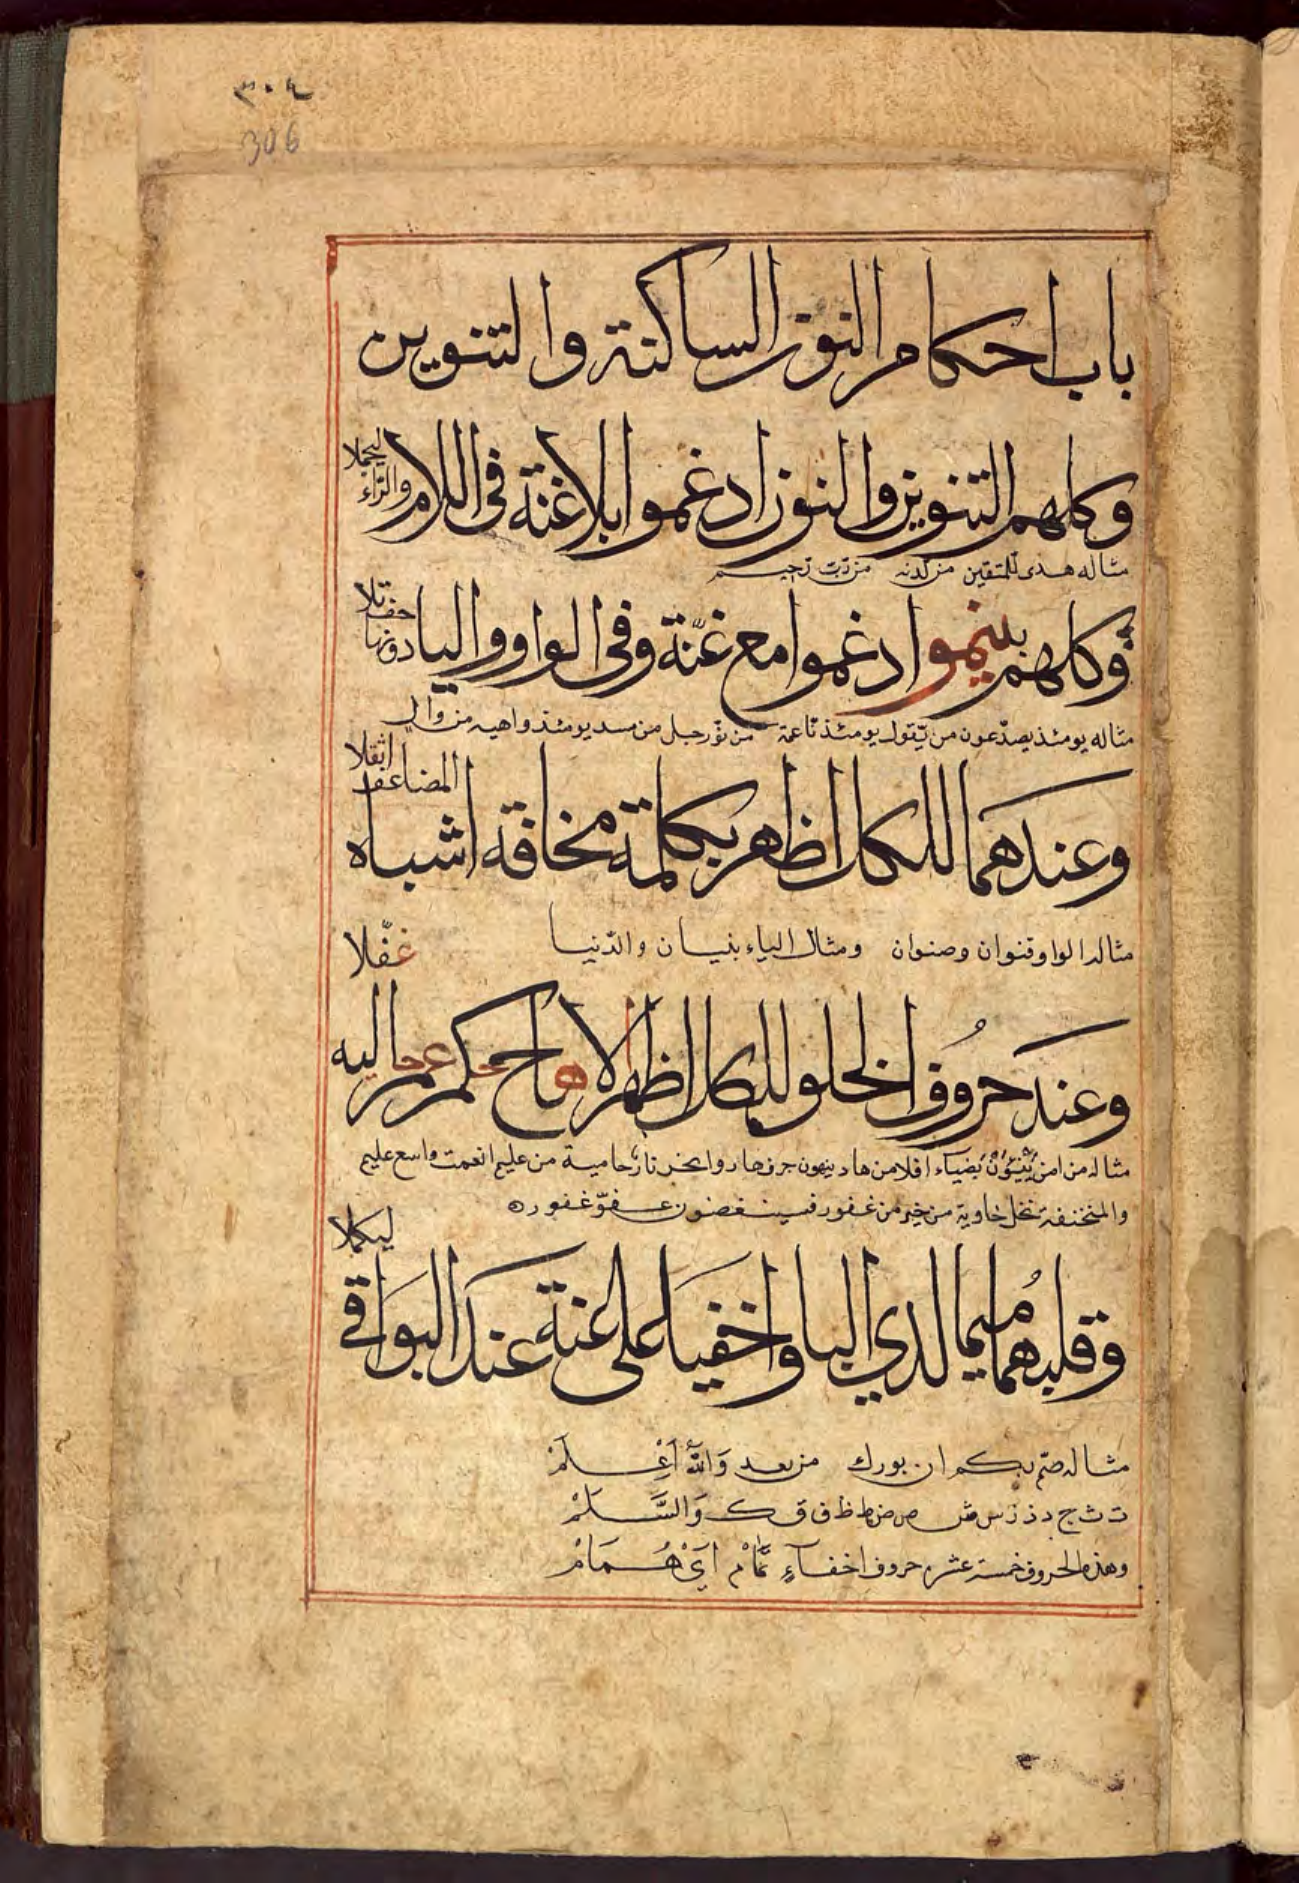 ٣٠٤
306
باب احكام النون الساكنة والتنوين
وكلهم التنوين والنون ادغموا بلا غنة فى اللام والرّاء ليجملا
مثاله هدى للّمتقين من لّدنه من رّبّ رّحيم
وكلهم بينمو ادغموا مع غنّة وفى الواو واليا دونها خلف تلا
مثاله يومئذ يصدّعون من يّقول يومئذ نّاعمة من نّور حبل من مسد يومئذ واهيه من وال
وعندهما للكل اظهر بكلمة مخافة اشباه المضاعف اثقلا
مثاله الواو قنوان وصنوان ومثال الياء بنيان والدّنيا
وعند حروف الحلق للكل اظهرا الا هاج حكم عم خاليه غفّلا
مثاله من امن يَنْئَوْنَ بضياء افلا من هاد ينهون جرف هار وانحر نار حامية من عليم انعمت واسع عليم
والمنخنقة نخل خاوية من خير من غفور فسينغضون عفوّ غفور ه
وقلبهما ميما لدي اليا واخفيا على غنة عند البواقى ليكملا
مثاله صّم بكم ان بورك من بعد وَاللّهُ اَعْلَمْ
ت ث ج د ذ ز س ش ص ض ط ظ ف ق ك وَالسَّلَمْ
وهذه الحروف خمسة عشر حروف اخفآءٍ تَمَّامْ اَىْ هُمَامْ